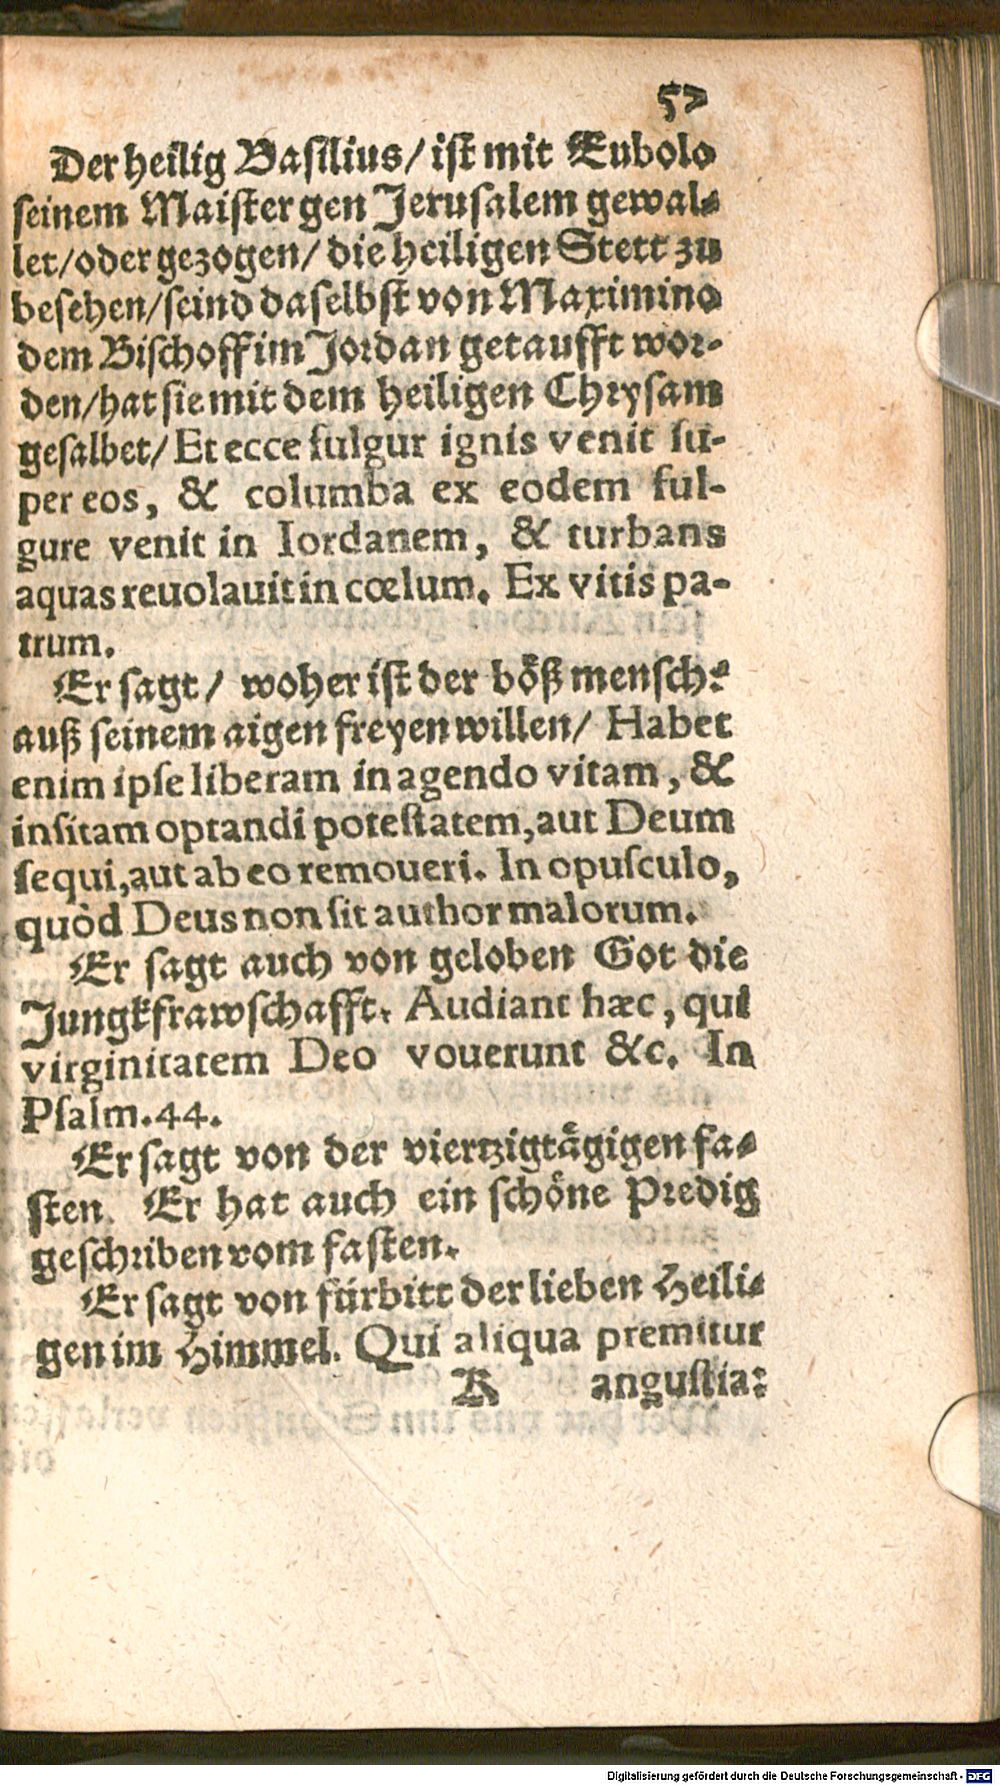 57
Der heilig Basilius/ ist mit Eubolo
seinem Maister gen Jerusalem gewal-
let/ oder gezogen/ die heiligen Stett zu
besehen/ seind daselbst von Maximino
dem Bischoff im Jordan getaufft wor-
den/ hat sie mit dem heiligen Chrysam
gesalbet/ Et ecce fulgur ignis venit su-
per eos, & columba ex eodem ful-
gure venit in Iordanem, & turbans
aquas reuolauit in cœlum. Ex vitis pa-
trum.
Er sagt/ woher ist der bo᷑ͤß mensch?
auß seinem aigen freyen willen/ Habet
enim ipse liberam in agendo vitam, &
insitam optandi potestatem, aut Deum
sequi, aut ab eo remoueri. In opusculo,
quòd Deus non sit author malorum.
Er sagt auch von geloben Got die
Jungkfrawschafft. Audiant hæc, qui
virginitatem Deo vouerunt &c. In
Psalm. 44.
Er sagt von der viertzigtaͤgigen fa-
sten. Er hat auch ein schoͤne Predig
geschriben vom fasten.
Er sagt von fürbitt der lieben Heili-
gen im Himmel. Qui aliqua premitur
K angustia:
Digitalisierung gefördert durch die Deutsche Forschungsgemeinschaft - DFG